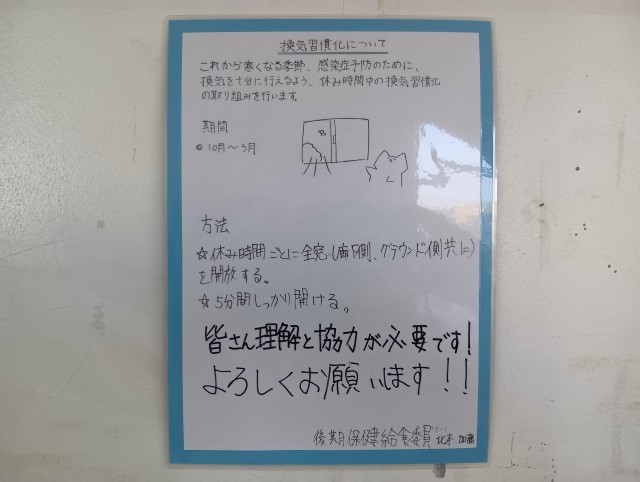 換気習慣化について
これから寒くなる季節、感染症予防のために、
換気を十分に行えるよう、休み時間中の換気習慣化
の取り組みを行います。
期間
10月〜3月
方法
☆休み時間ごとに全窓(廊下側、グラウンド側共に)
を開放する。
☆5分間しっかり開ける。
皆さん理解と協力が必要です!
よろしくお願いします!!
後期保健給食委員 北本 加藤